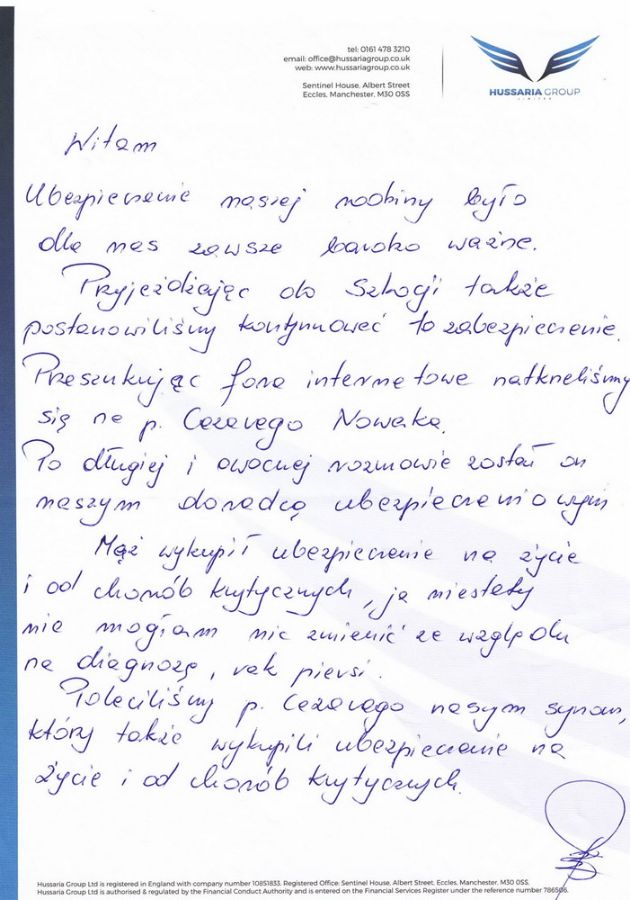 tel: 0161 478 3210
email: office@hussariagroup.co.uk
web: www.hussariagroup.co.uk
Sentinel House, Albert Street
Eccles, Manchester, M30 0SS
HUSSARIA GROUP
LIMITED
Witam
Ubezpieczenie naszej rodziny było
dla nas zawsze bardzo ważne.
Przyjeżdżając do Szkocji także
postanowiliśmy kontynuować to zabezpieczenie.
Przeszukując fora internetowe natkneliśmy
się na p. Cezarego Nowaka.
Po długiej i owocnej rozmowie został on
naszym doradcą ubezpieczeniowym
Mąż wykupił ubezpieczenie na życie
i od chorób krytycznych, ja niestety
nie mogłam nic zmienić ze względu
na diagnozę, rak piersi.
Poleciliśmy p. Cezarego naszym synom,
który także wykupili ubezpieczenie na
życie i od chorób krytycznych.
Hussaria Group Ltd is registered in England with company number 10851833. Registered Office: Sentinel House, Albert Street, Eccles, Manchester, M30 0SS.
Hussaria Group Ltd is authorised & regulated by the Financial Conduct Authority and is entered on the Financial Services Register under the reference number 786506.